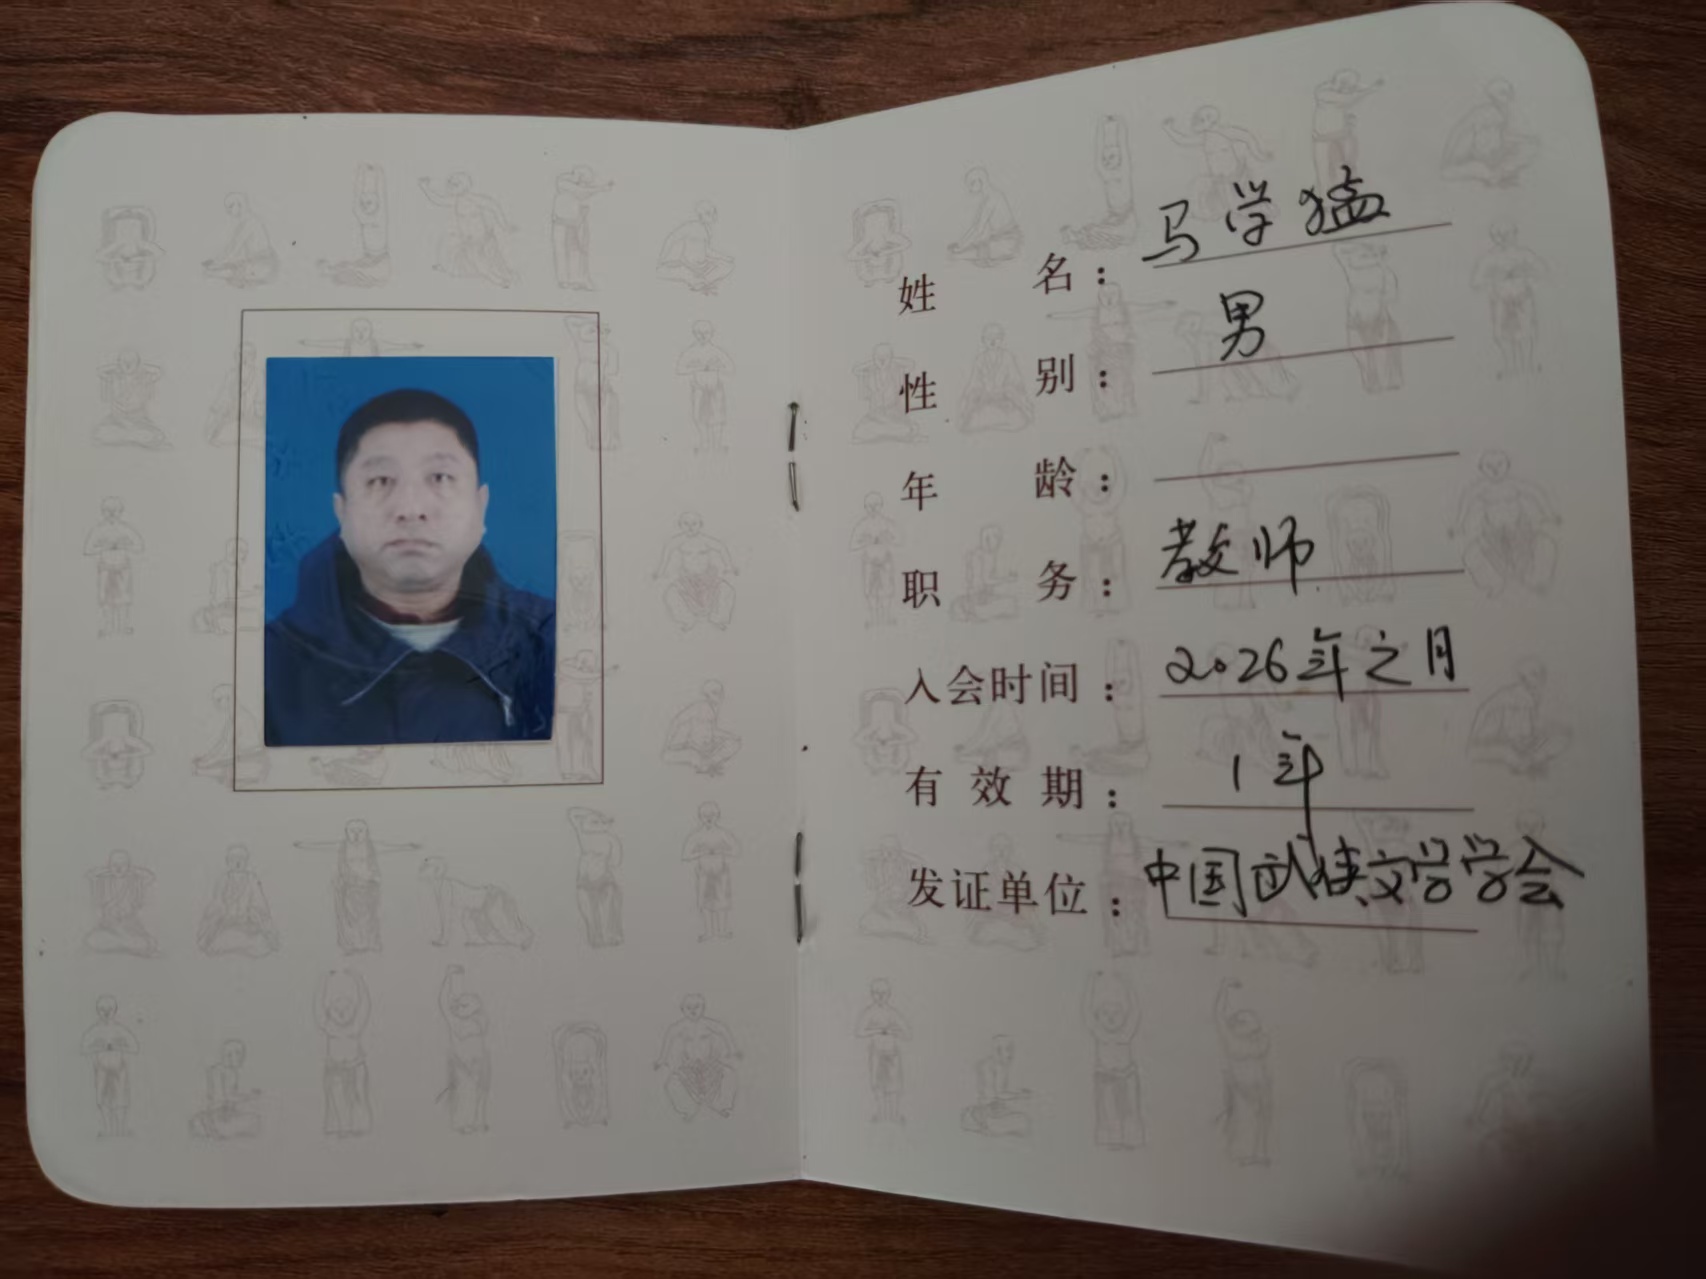 姓名：马学猛
性别：男
年龄：
职务：教师
入会时间：2026年之月
有效期：1年
发证单位：中国武侠文学学会